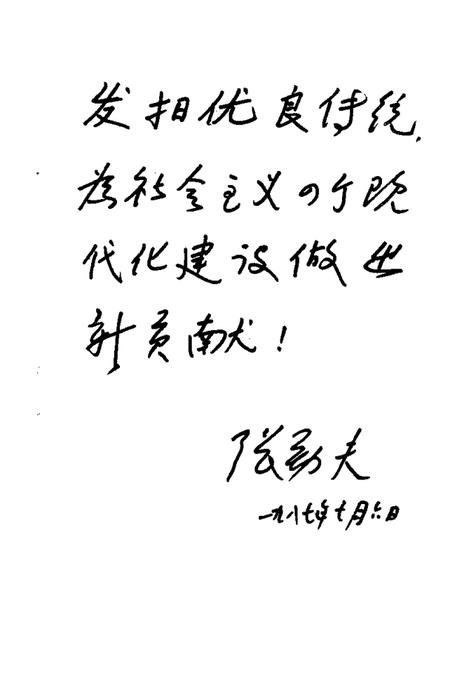 发扬优良传统，
为社会主义四个现
代化建设做出
新贡献！
张劲夫
一九八七年七月六日